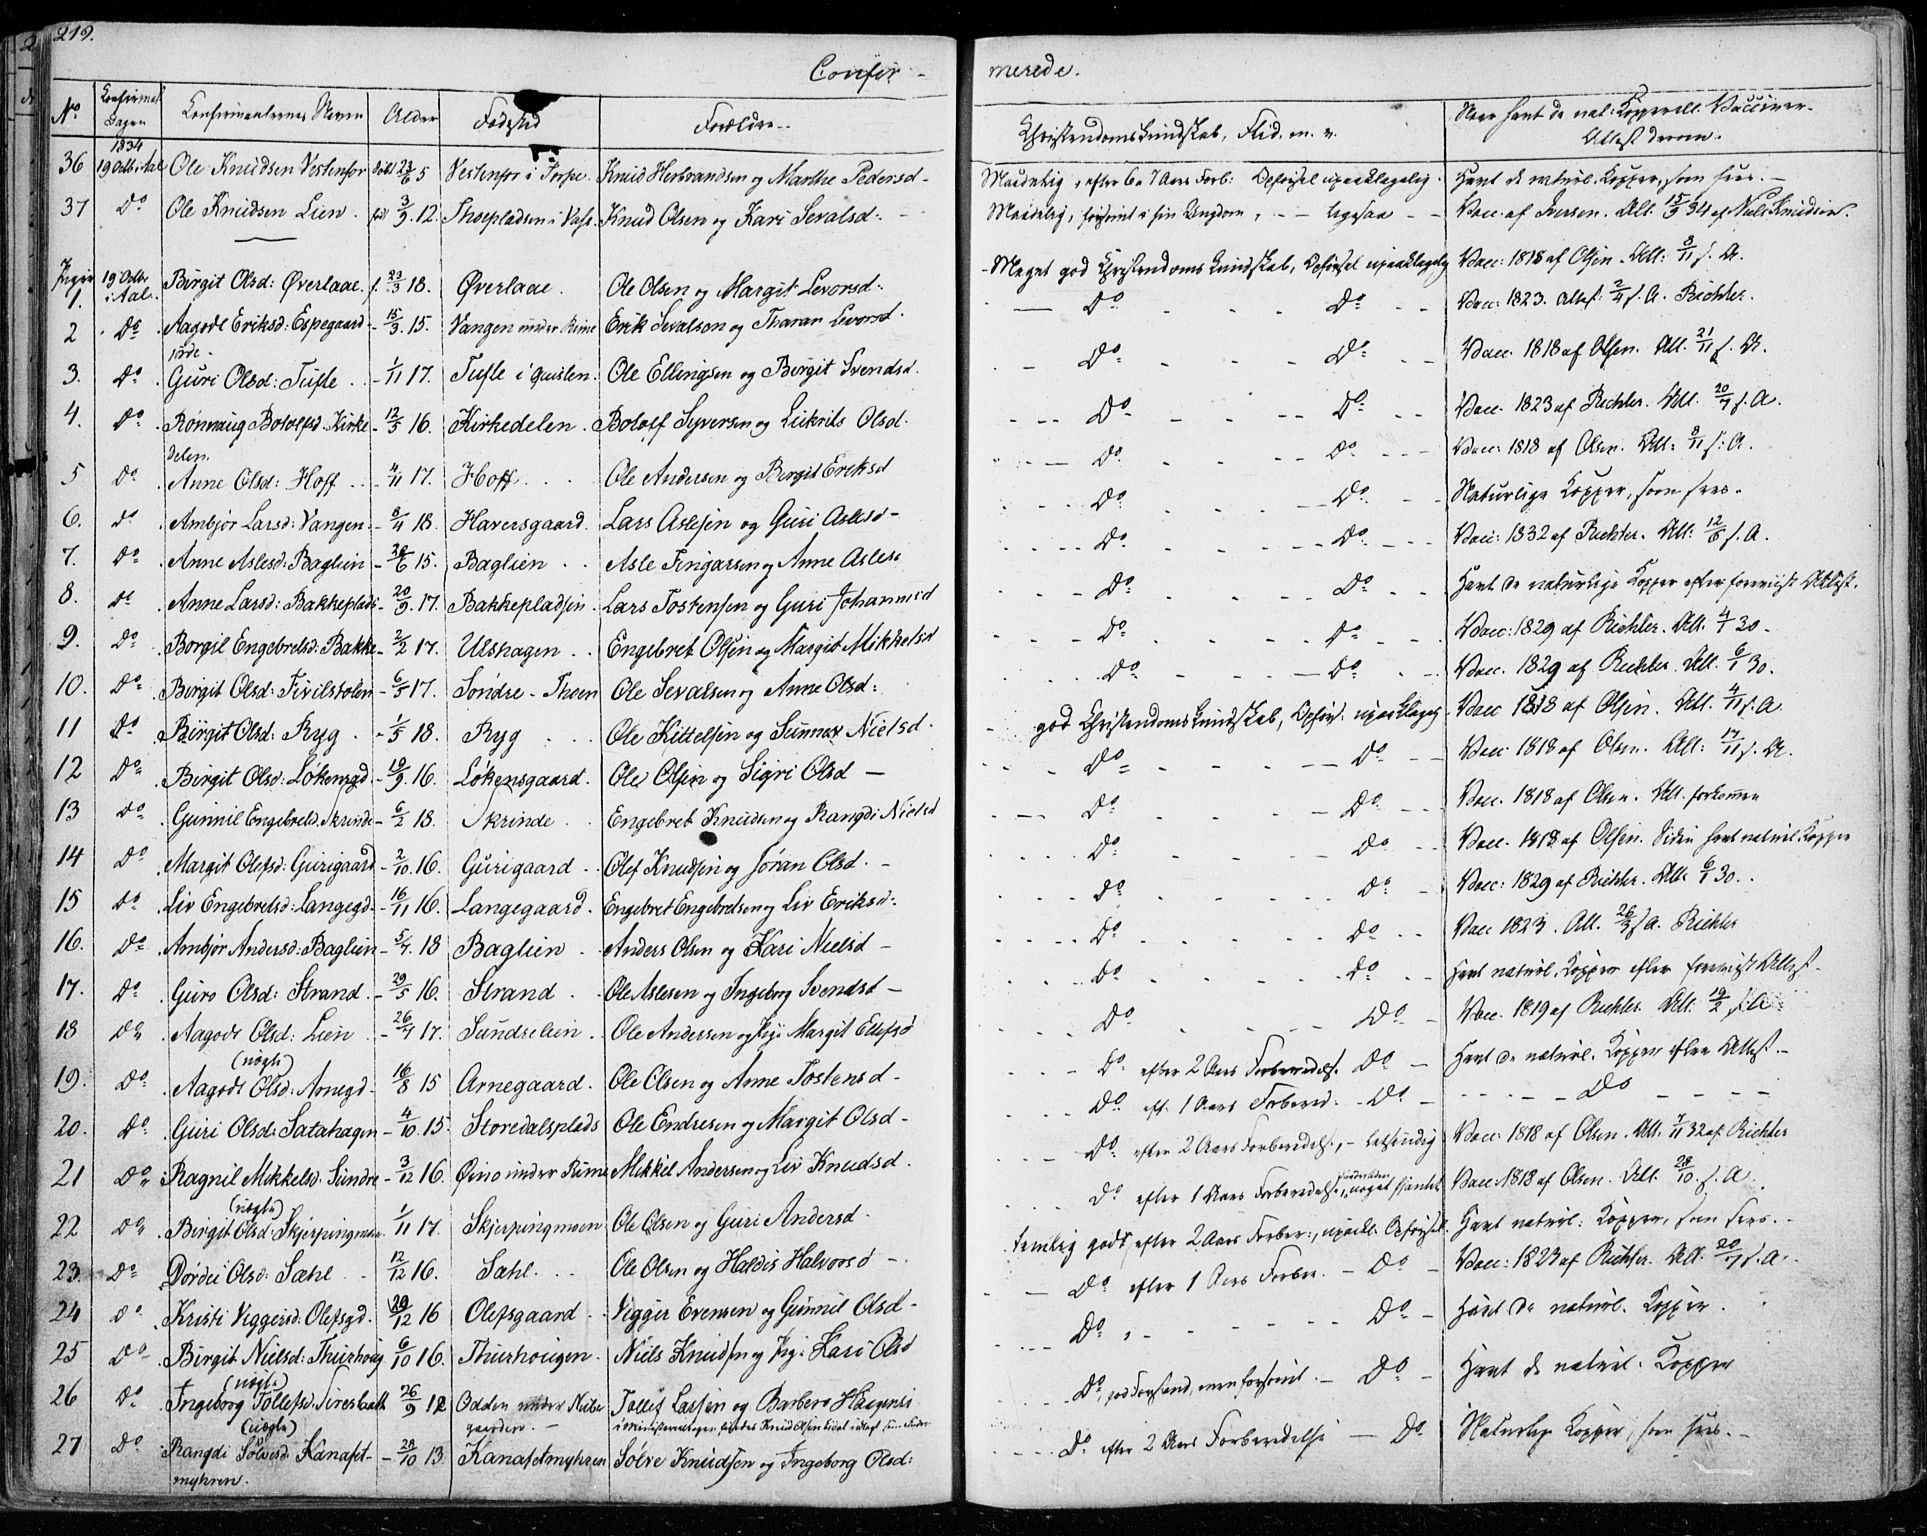 219.
Confir-
merede.
No Confirmat. Dagen Konfirmanternes Navne Alder Fødested Forældre
Christendomskundskab, Flid m. v. Naar havt de nat: Kopper ell. Vaccineret Attest derom.
1834
36 19 Octb i Aal Ole Knudsen Vestenfor døbt 23/6 5 Vestenfor i Torpe. Knud Herbrandsen og Marthe Pedersd- Maadelig, efter 6 a 7 Aars Forb: Opførsel upaaklagelig. Havt de naturl. Kopper, som sees.-
37 Do Ole Knudsen Lien. fød 3/9 12. Thoepladsen i Vals. Knud Olsen og Kari Sevalsd:- Maadelig, forsømt i sin Ungdom, - - ligesaa - - Vacc. af Iversen. Att. 15/9 34 af Niels Knudsen.
Piger
1. 19 Octbr. i Aal. Birgit Olsd: Øverlaae. f. 23/3 18. Øverlaae. Ole Olsen og Margit Levorsd:- Meget god Christendomskundskab, Opførsel upaaklagelig Vacc: 1818 af Olsen. Att: 8/11 f. A.
2 Do Aagodt Eriksd: Espegaard- 15/3 15. Vangen under Rime Erik Sevalsen og Tharan Levorsd. Do Do Vacc: 1823. Attest: 2/4 f. A. Richter.
jorde-
3. Do Guri Olsd: Tufte - 1/11 17. Tufte i Quislen. Ole Ellingsen og Birgit Svendsd. Do Do Vacc. 1818 af Olsen. Att. 21/11 f. A.
4. Do Rønnaug Botolfsd. Kirke- 12/5 16. Kirkedelen. Botolf Syversen og Liikrils Olsd. Do Do Vacc. 1823 af Richter. Att. 20/7 f. A.
delen.
5 Do Anne Olsd: Hoff - 4/11 17. Hoff. Ole Andersen og Birgit Eriksd Do Do Vacc: 1818 af Olsen. Att: 8/11 f. A.
6. Do Ambjør Larsd: Vangen - 8/4 18. Haversgaard. Lars Aslesen og Guri Aslesd- Do Do Naturlige Kopper, som sees.
7. Do Anne Aslesd: Baglien - 28/6 15. Baglien Asle Fingarsen og Anne Aslesd Do Do Vacc: 1832 af Richter. Att: 12/6 f. A.
8. Do Anne Larsd: Bakkeplads 20/9 17. Bakkepladsen. Lars Tostensen og Guri Johannesd Do Do Havt de naturlige Kopper efter foreviist Attest.
9. Do Borgil Engebretsd. Bakke - 2/2 17. Ulshagen Engebret Olsen og Margit Mikkelsd Do Do Vacc: 1829 af Richter. Att. 4/1 30.
10. Do Birgit Olsd: Tivilstolen - 6/5 17. Søndre-Thoen Ole Sevalsen og Anne Olsd: Do Do Vacc. 1829 af Richter. Att. 6/1 30.
11 Do Birgit Olsd: Ryg - 1/5 18. Ryg Ole Kittelsen og Gunner Nielsd. god Christendomskundskab, Opførs. upaaklagelig Vacc 1818 af Olsen. Att. 4/11 f. A
12 Do Birgit Olsd: Løkensgd. - 18/9 16. Løkensgaard. Ole Olsen og Sigri Olsd - Do Do Vacc 1818 af Olsen. Att: 17/11 f. A.
13 Do Gunnil Engebretsd. Skrinde - 6/2 18. Skrinde Engebret Knudsen og Rangdi Nielsd Do Do Vacc. 1818 af Olsen. Att. forkommen
14 Do Margit Olefsd: Gurigaard - 2/10 16. Gurigaard Olef Knudsen og Jøran Olsd. - Do Do Vacc. 1818 af Olsen. Siden havt naturl. Kopper
15 Do Liv Engebretsd: Langegd. - 16/11 16. Langegaard. Engebret Engebretsen og Liv Eriksd:- Do Do Vacc: 1829 af Richter. Att: 6/1 30.
16. Do Ambjør Andersd: Baglien - 5/7 18 Baglien Anders Olsen og Kari Nielsd- Do Do Vacc 1823. Att. 26/3 f. A. Richter
17. Do Guro Olsd: Strand. - 29/5 16. Strand Ole Aslesen og Ingeborg Svendsd- Do Do Havt naturl. Kopper efter foreviist Attest-
18 Do Aagodt Olsd: Lien - 26/7 17. Sundrelien Ole Andersen og Pige Margit Ellefsd Do Do Vacc. 1819 af Richter. Att. 19/2 f. A
(uægte)
19. Do Aagodt Olsd: Arnegd- 16/8 15 Arnegaard. Ole Olsen og Anne Tostensd- Do efter 2 Aars Forberedels. Do - Havt de naturl. Kopper efter Attest.-
20. Do Guri Olsd: Satahagen - 4/10 15. Storedalsplads Ole Endresen og Margit Olsd- Do eft. 1 Aars Forbered. - Do - Do
21 Do Ragnil Mikkelsd. Sundre - 3/12 16. Øino under Rime Mikkel Andersen og Liv Knudsd. Do efter 2 Aars Forberedelse, - letsindig Vacc: 1818 af Olsen. Att. 7/11 32 af Richter
(uægte)
22 Do Birgit Olsd: Skjerpingmoen 1/11 17. Skjerpingmoen Ole Olsen og Guri Andersd. Do efter 1 Aars Forberedelse, noget Vacc: 1818 af Olsen. Att. 28/10 f. A
23. Do Dordei Olsd: Sæhl 12/12 16. Sæhl. Ole Olsen og Haldis Halvorsd - temlig godt efter 2 Aars Forber:, upaakl. Opførsel. Havt naturl: Kopper, som sees.-
24 Do Kristi Viggersd: Olefsgd. 29/12 16 Olefsgaard Vigger Evensen og Gunnil Olsd- Do efter 1 Aars Forber. - Do - Vacc: 1823 af Richter. Att. 20/7 f. A.
25 Do Birgit Nielsd: Thurhoug 6/10 16. Thurhougen Niels Knudsen og Pige Kari Olsd Do, Do - Havt de naturl. Kopper.
(uægte)
26 Do Ingeborg Tollefsd. 26/9 12 Odden under Nubgaarden.- Tollef Larsen og Barbero Haagensd Do, god Forstand, men forsømt. - Do - Havt de naturl. Kopper
(uægte)
27 Do Rangdi Sølvesd: Kanaset- - 28/10 13. Kanasetmyhren Sølve Knudsen og Ingeborg Olsd: Do efter 2 Aars Forberedelse - Do Naturlige Kopper, som sees.-
myhren.